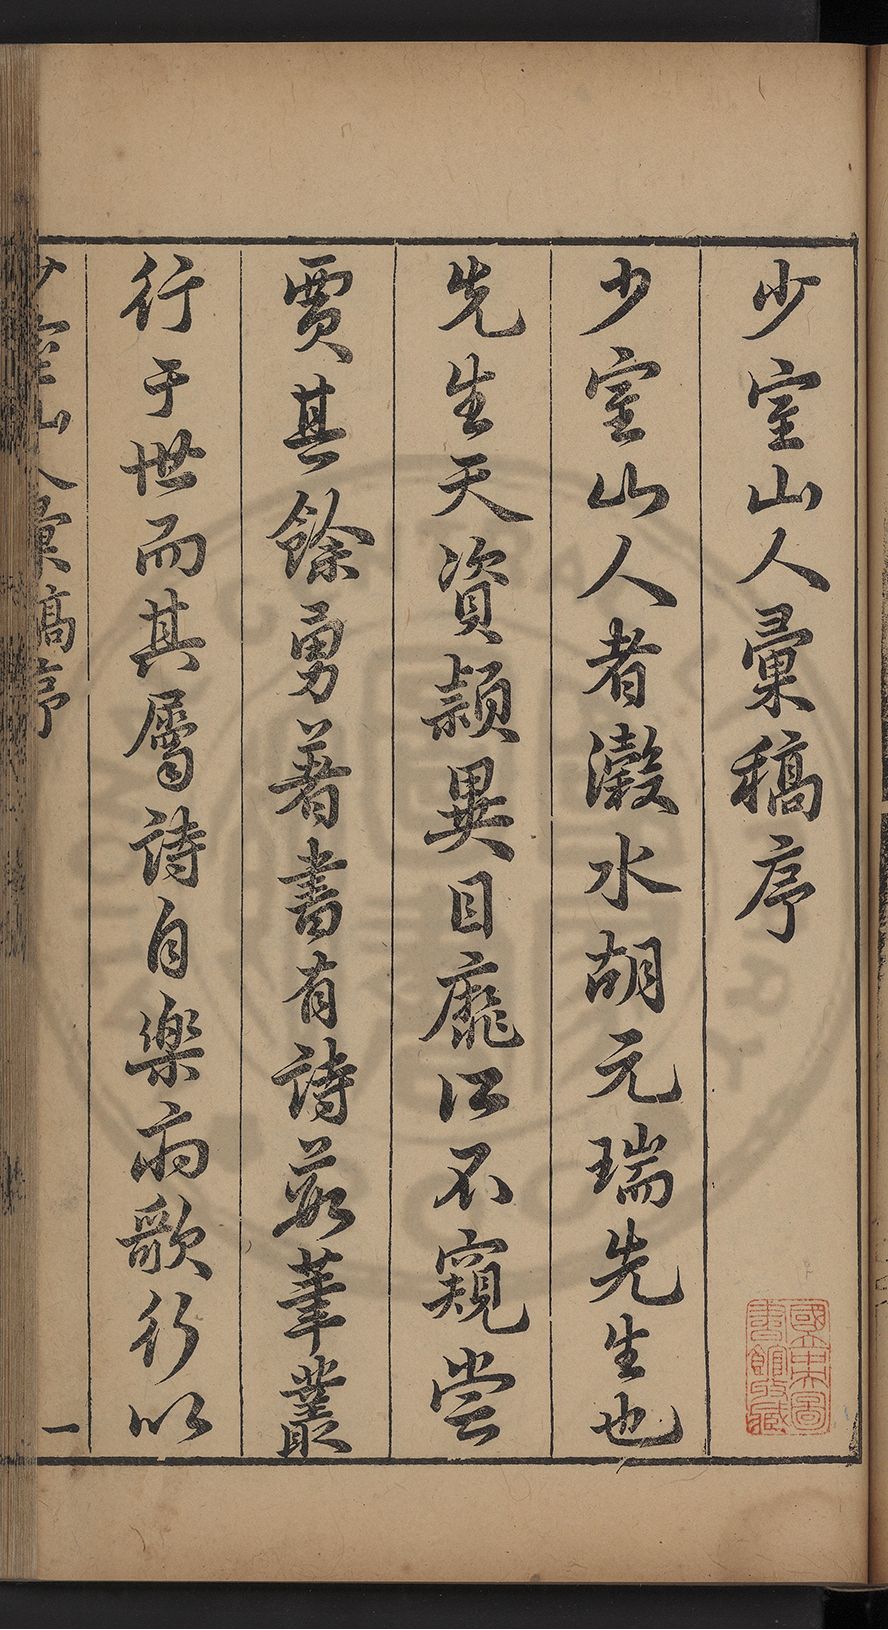 少室山人彙稿序
少室山人者瀔水胡元瑞先生也
先生天資穎異目靡所不窺嘗
賈其餘勇著書有詩藪筆叢
行于世而其屬詩自樂府歌行以
少室山人彙稿序
一
國立中央圖
書館收藏